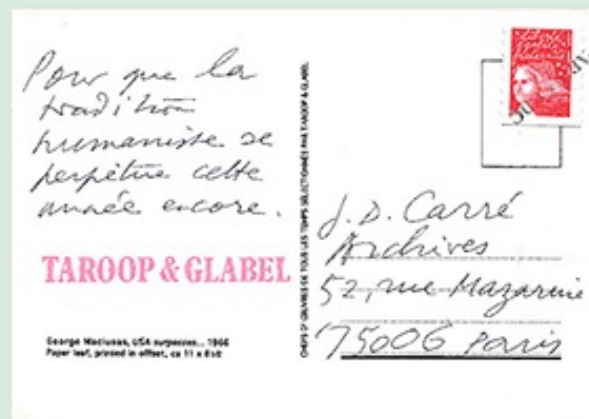 Pour que la
tradition
humaniste se
perpétue cette
année encore.
TAROOP & GLABEL
George Maciunas, USA surpasses... 1966
Paper leaf, printed in offset, ca 11 x 8½
CHEFS D'ŒUVRES DE TOUS LES TEMPS SÉLECTIONNÉS PAR TAROOP & GLABEL
J.D. Carré
Archives
52, rue Mazarine
75006 Paris